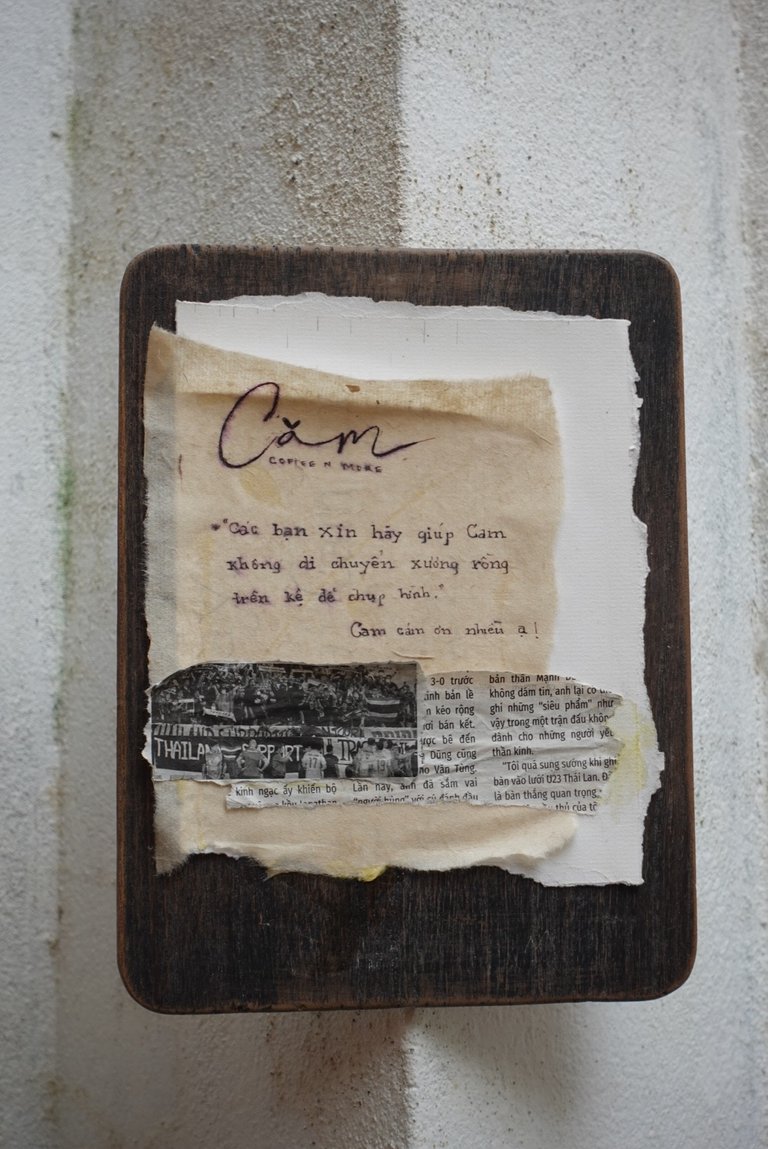 Căm
COFFEE N MORE
"Các bạn xin hãy giúp Cam
không di chuyển xuồng rồng
trên kệ để chụp hình."
Cam cám ơn nhiều ạ!
THAILAND SUPPORT
3-0 trước
ảnh bản lề
n kéo rộng
bán kết.
ược bê đến
Dũng cũng
ho Văn Tùng.
kinh ngạc ấy khiến bộ
Lần này, anh đã sắm vai
"người hùng" với cú đánh đầu
bản thân Mạnh
không dám tin, anh lại có
ghi những "siêu phẩm" như
vậy trong một trận đấu không
dành cho những người yếu
thần kinh.
"Tôi quá sung sướng khi ghi
bàn vào lưới U23 Thái Lan.
là bàn thắng quan trọng
thủ của tô